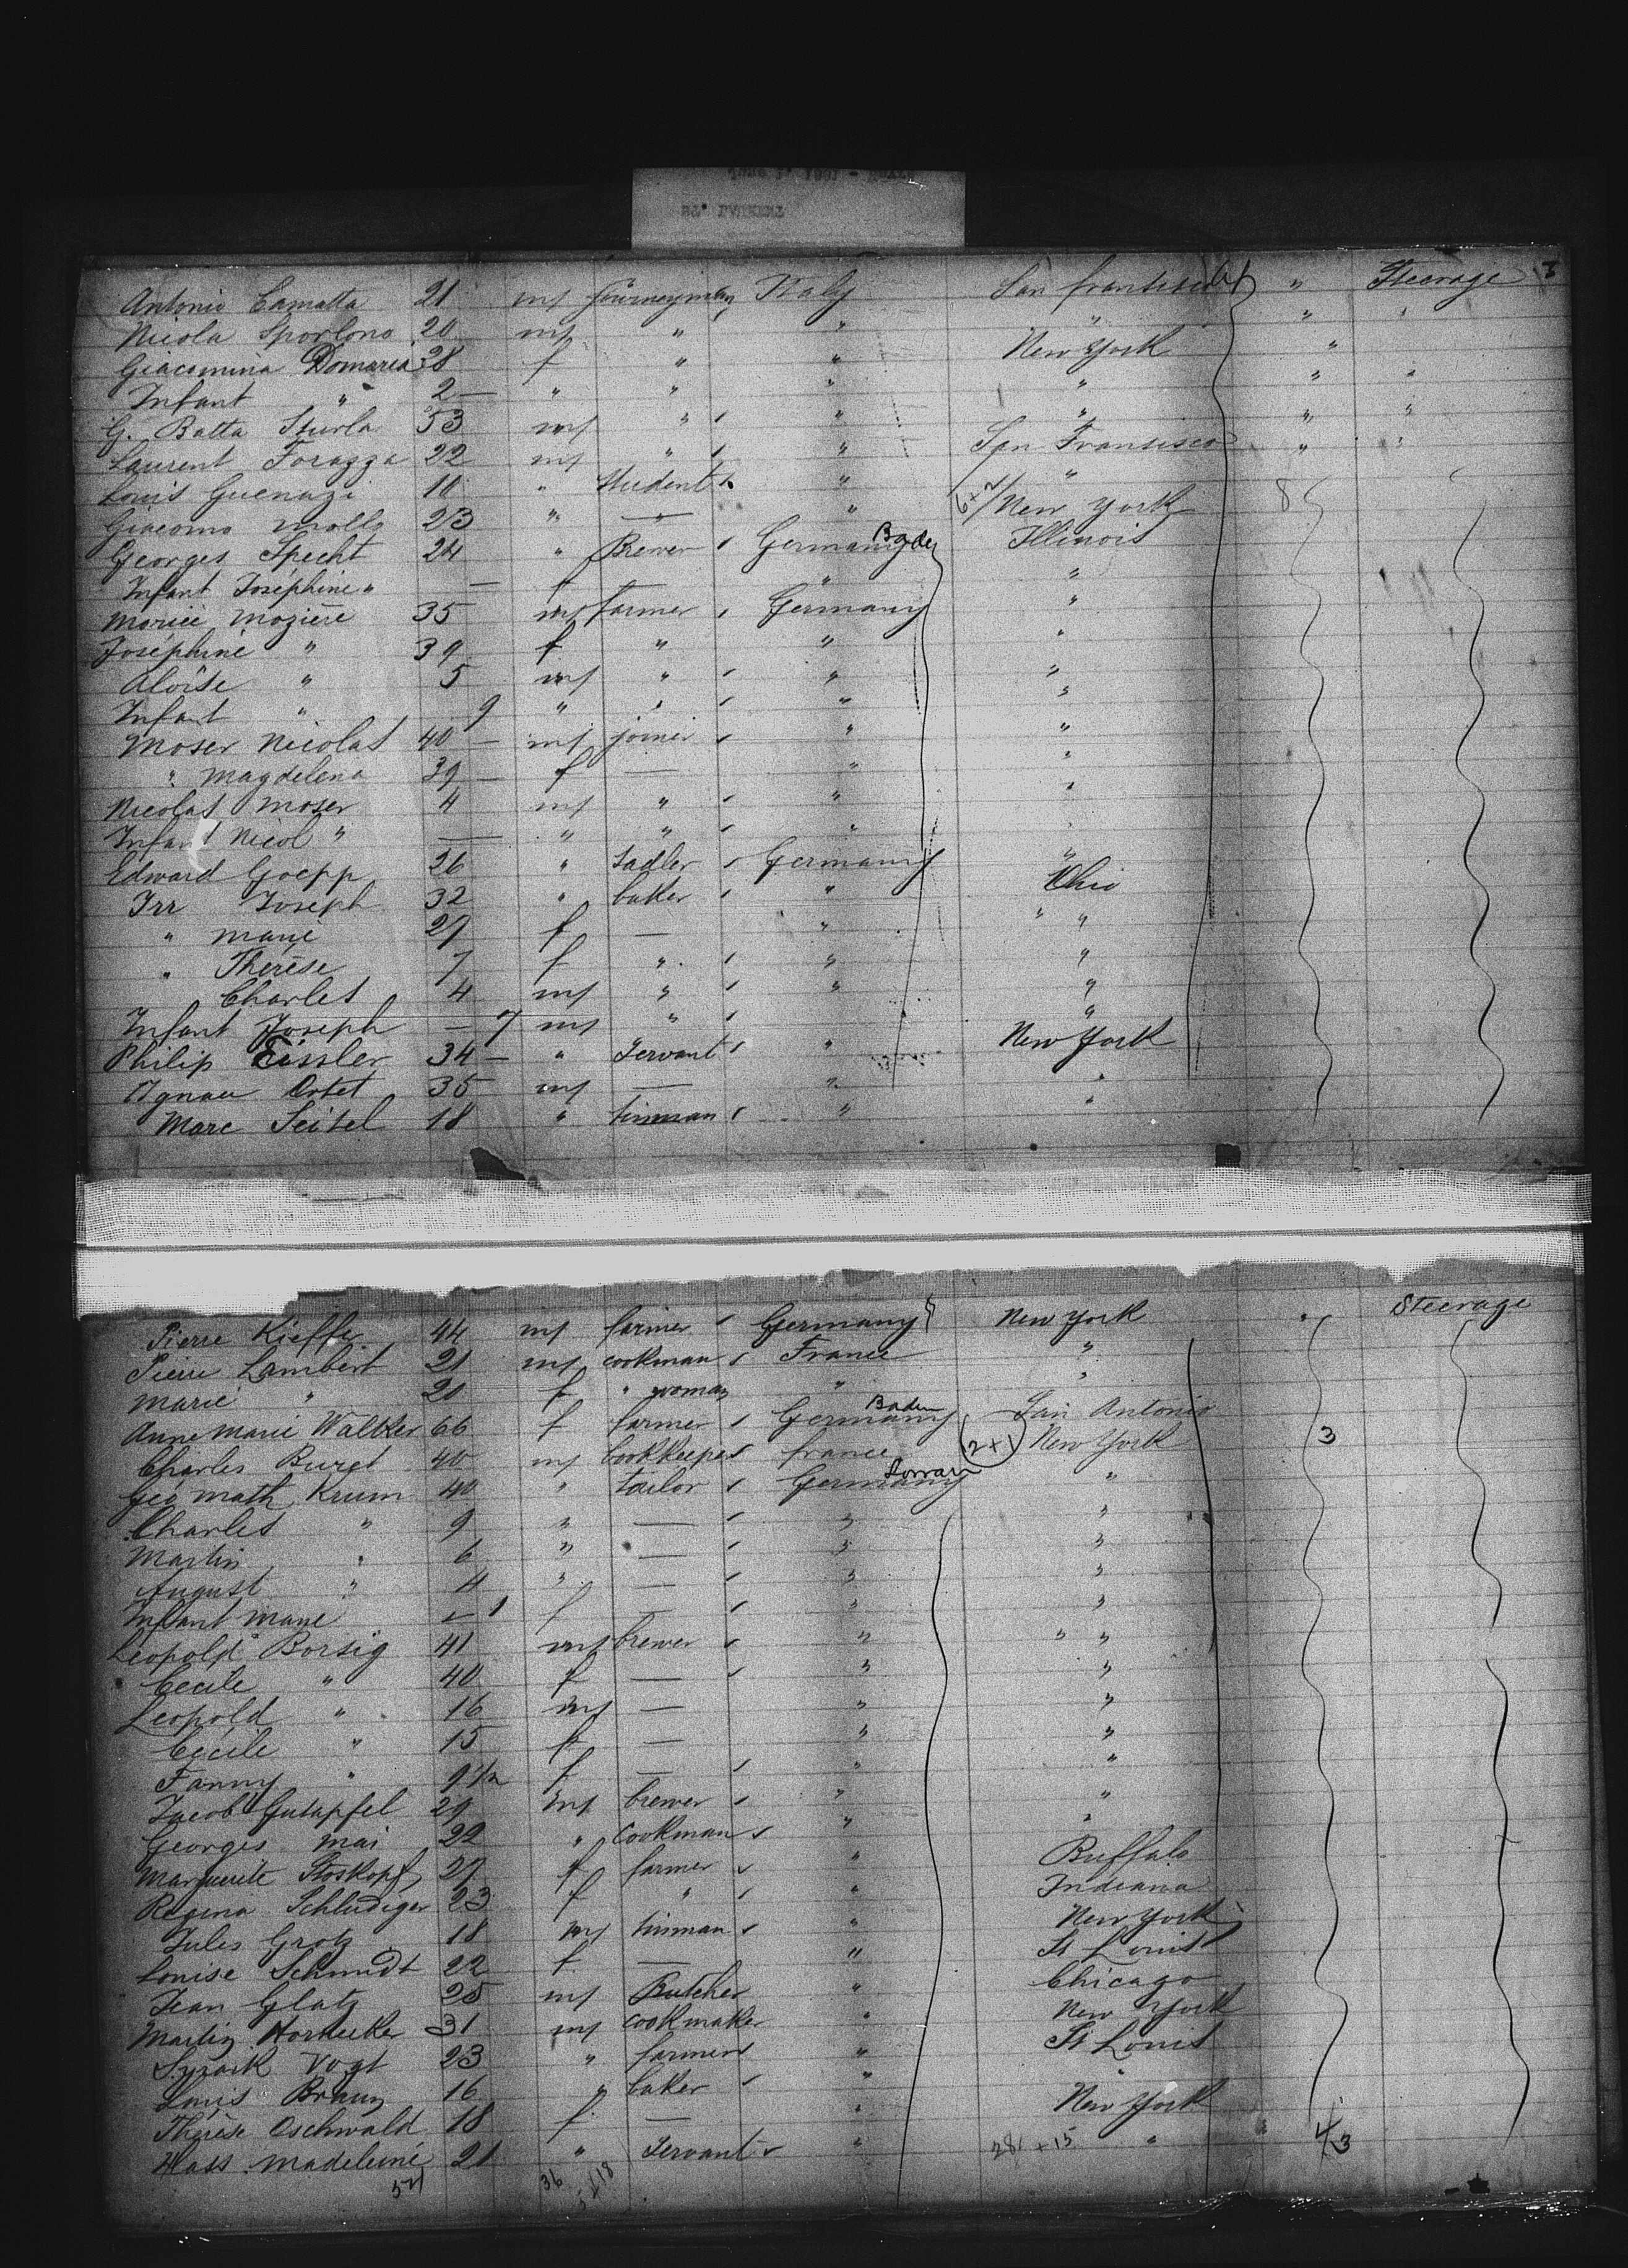 Antonio Camatta 21 m/ journeyman Italy San fransisco " Steerage
Nicola Sporlono 20 m/ " " " " "
Giacomina Domaria 38 f " " New York "
Infant " 2 — " " " " " "
G. Batta Sturla 53 m/ " " " " "
Laurent Forazza 22 m/ " " San Fransisco " "
Louis Guenazi 10 " Student " "
Giacomo molls 23 " — " New York 8
Georges Specht 24 " Brewer Germany Baden Illinois
Infant Joséphine " — f — " "
Moziere 35 m/ farmer Germany "
Joséphine " 39 f " " "
Aloïse " 5 m/ " " "
Infant " 9 " " " "
Moser Nicolas 40 — m/ joiner " "
" Magdelena 39 — f — " "
Nicolas Moser 4 m/ " " "
Infant Nicol " — " " " "
Edward Goepp 26 " Sadler Germany "
Irr Joseph 32 " baker " Ohio
" marie 27 f — " " "
" Therèse 7 f " " "
Charles 4 m/ " " "
Infant Joseph — 7 m/ " " "
Philip Eissler 34 — " Servant " New York
35 m/ — " "
Marc Seitel 18 " tinman " "
Pierre Kieffer 44 m/ farmer Germany New York " Steerage
Pierre Lambert 21 m/ cookman France "
marie " 20 f " woman " "
Anne Marie Walther 66 f farmer Germany Baden San Antonio
Charles Buret 40 m/ bookkeeper france (2+1) New York 3
Geo math Krum 40 " tailor Germany "
Charles " 9 " — " "
Martin " 6 " — " "
August " 4 " — " "
Infant marie — 1 f — " "
Leopold Borsig 41 m/ brewer " " "
Cecile " 40 f — " "
Leopold " 16 m/ — " "
Cécile " 15 f — " "
Fanny " 9 1/2 f — " "
Jacob Gutapfel 29 m/ brewer " "
Georges mai 22 " Cookman " "
Marguerite Stoskopf 27 f farmer " Buffalo
Regina Schludiger 23 f " " Indiana
Jules Grotz 18 m/ tinman " New York
Louise Schmidt 22 f — " St Louis
Jean Glatz 25 m/ Butcher " Chicago
Martin 31 m/ cookmaker " New York
Vogt 23 " farmer " St Louis
Louis Braun 16 " baker " "
Thérèse Oschwald 18 f — " New York
Hass Madeleine 21 " Servant " 28/ + 15 " 4/3
36